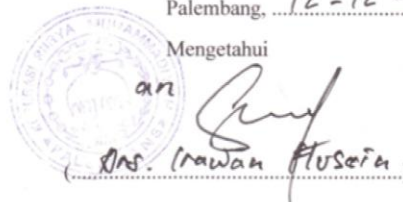 Palembang, 12-12-
Mengetahui
an
(Drs. Irawan Husein